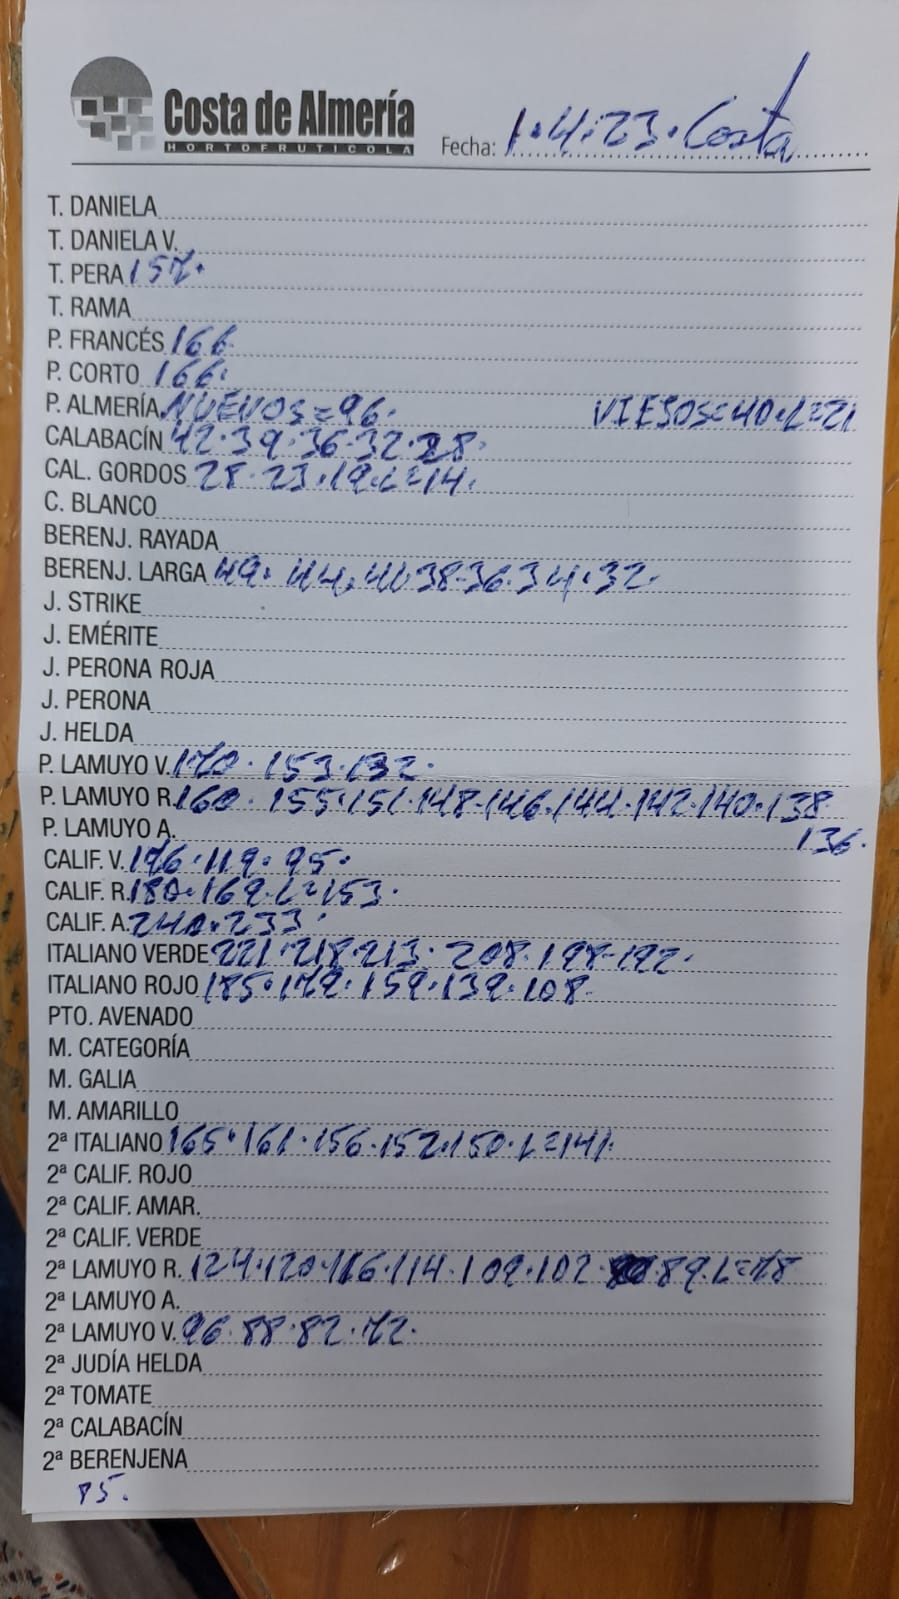 Costa de Almería
HORTOFRUTICOLA
Fecha: 1.4.23. Costa
T. DANIELA
T. DANIELA V.
T. PERA 157.
T. RAMA
P. FRANCÉS 166
P. CORTO 166.
P. ALMERÍA NUEVOS=96. VIEJOS=40.L=21
CALABACÍN 42.39.36.32.28.
CAL. GORDOS 28.23.19.L=14.
C. BLANCO
BERENJ. RAYADA
BERENJ. LARGA 49. 44.41.38-36.34.32.
J. STRIKE
J. EMÉRITE
J. PERONA ROJA
J. PERONA
J. HELDA
P. LAMUYO V. 170.153.132.
P. LAMUYO R. 160.155.151.148.146.144.142.140.138
P. LAMUYO A. 136.
CALIF. V. 176.119.95.
CALIF. R. 180.169.L=153.
CALIF. A. 240.233.
ITALIANO VERDE 221.218.213.208.198-192.
ITALIANO ROJO 185.179.159.139.108.
PTO. AVENADO
M. CATEGORÍA
M. GALIA
M. AMARILLO
2ª ITALIANO 165.161.156.152.150.L=141.
2ª CALIF. ROJO
2ª CALIF. AMAR.
2ª CALIF. VERDE
2ª LAMUYO R. 124.120.116.114.109.102. 89.L=78
2ª LAMUYO A.
2ª LAMUYO V. 96.88.82.72.
2ª JUDÍA HELDA
2ª TOMATE
2ª CALABACÍN
2ª BERENJENA
P5.